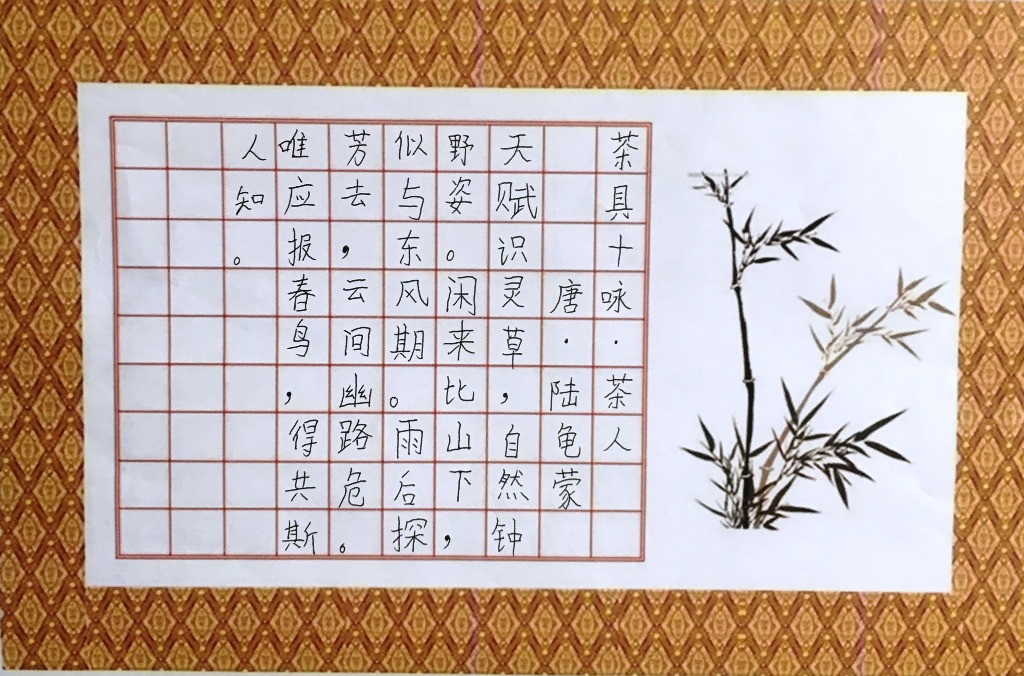 茶具十咏·茶人
唐·陆龟蒙
天赋识灵草，自然钟
野姿。闲来比山下，
似与东风期。雨后探
芳去，云间幽路危。
唯应报春鸟，得共斯
人知。